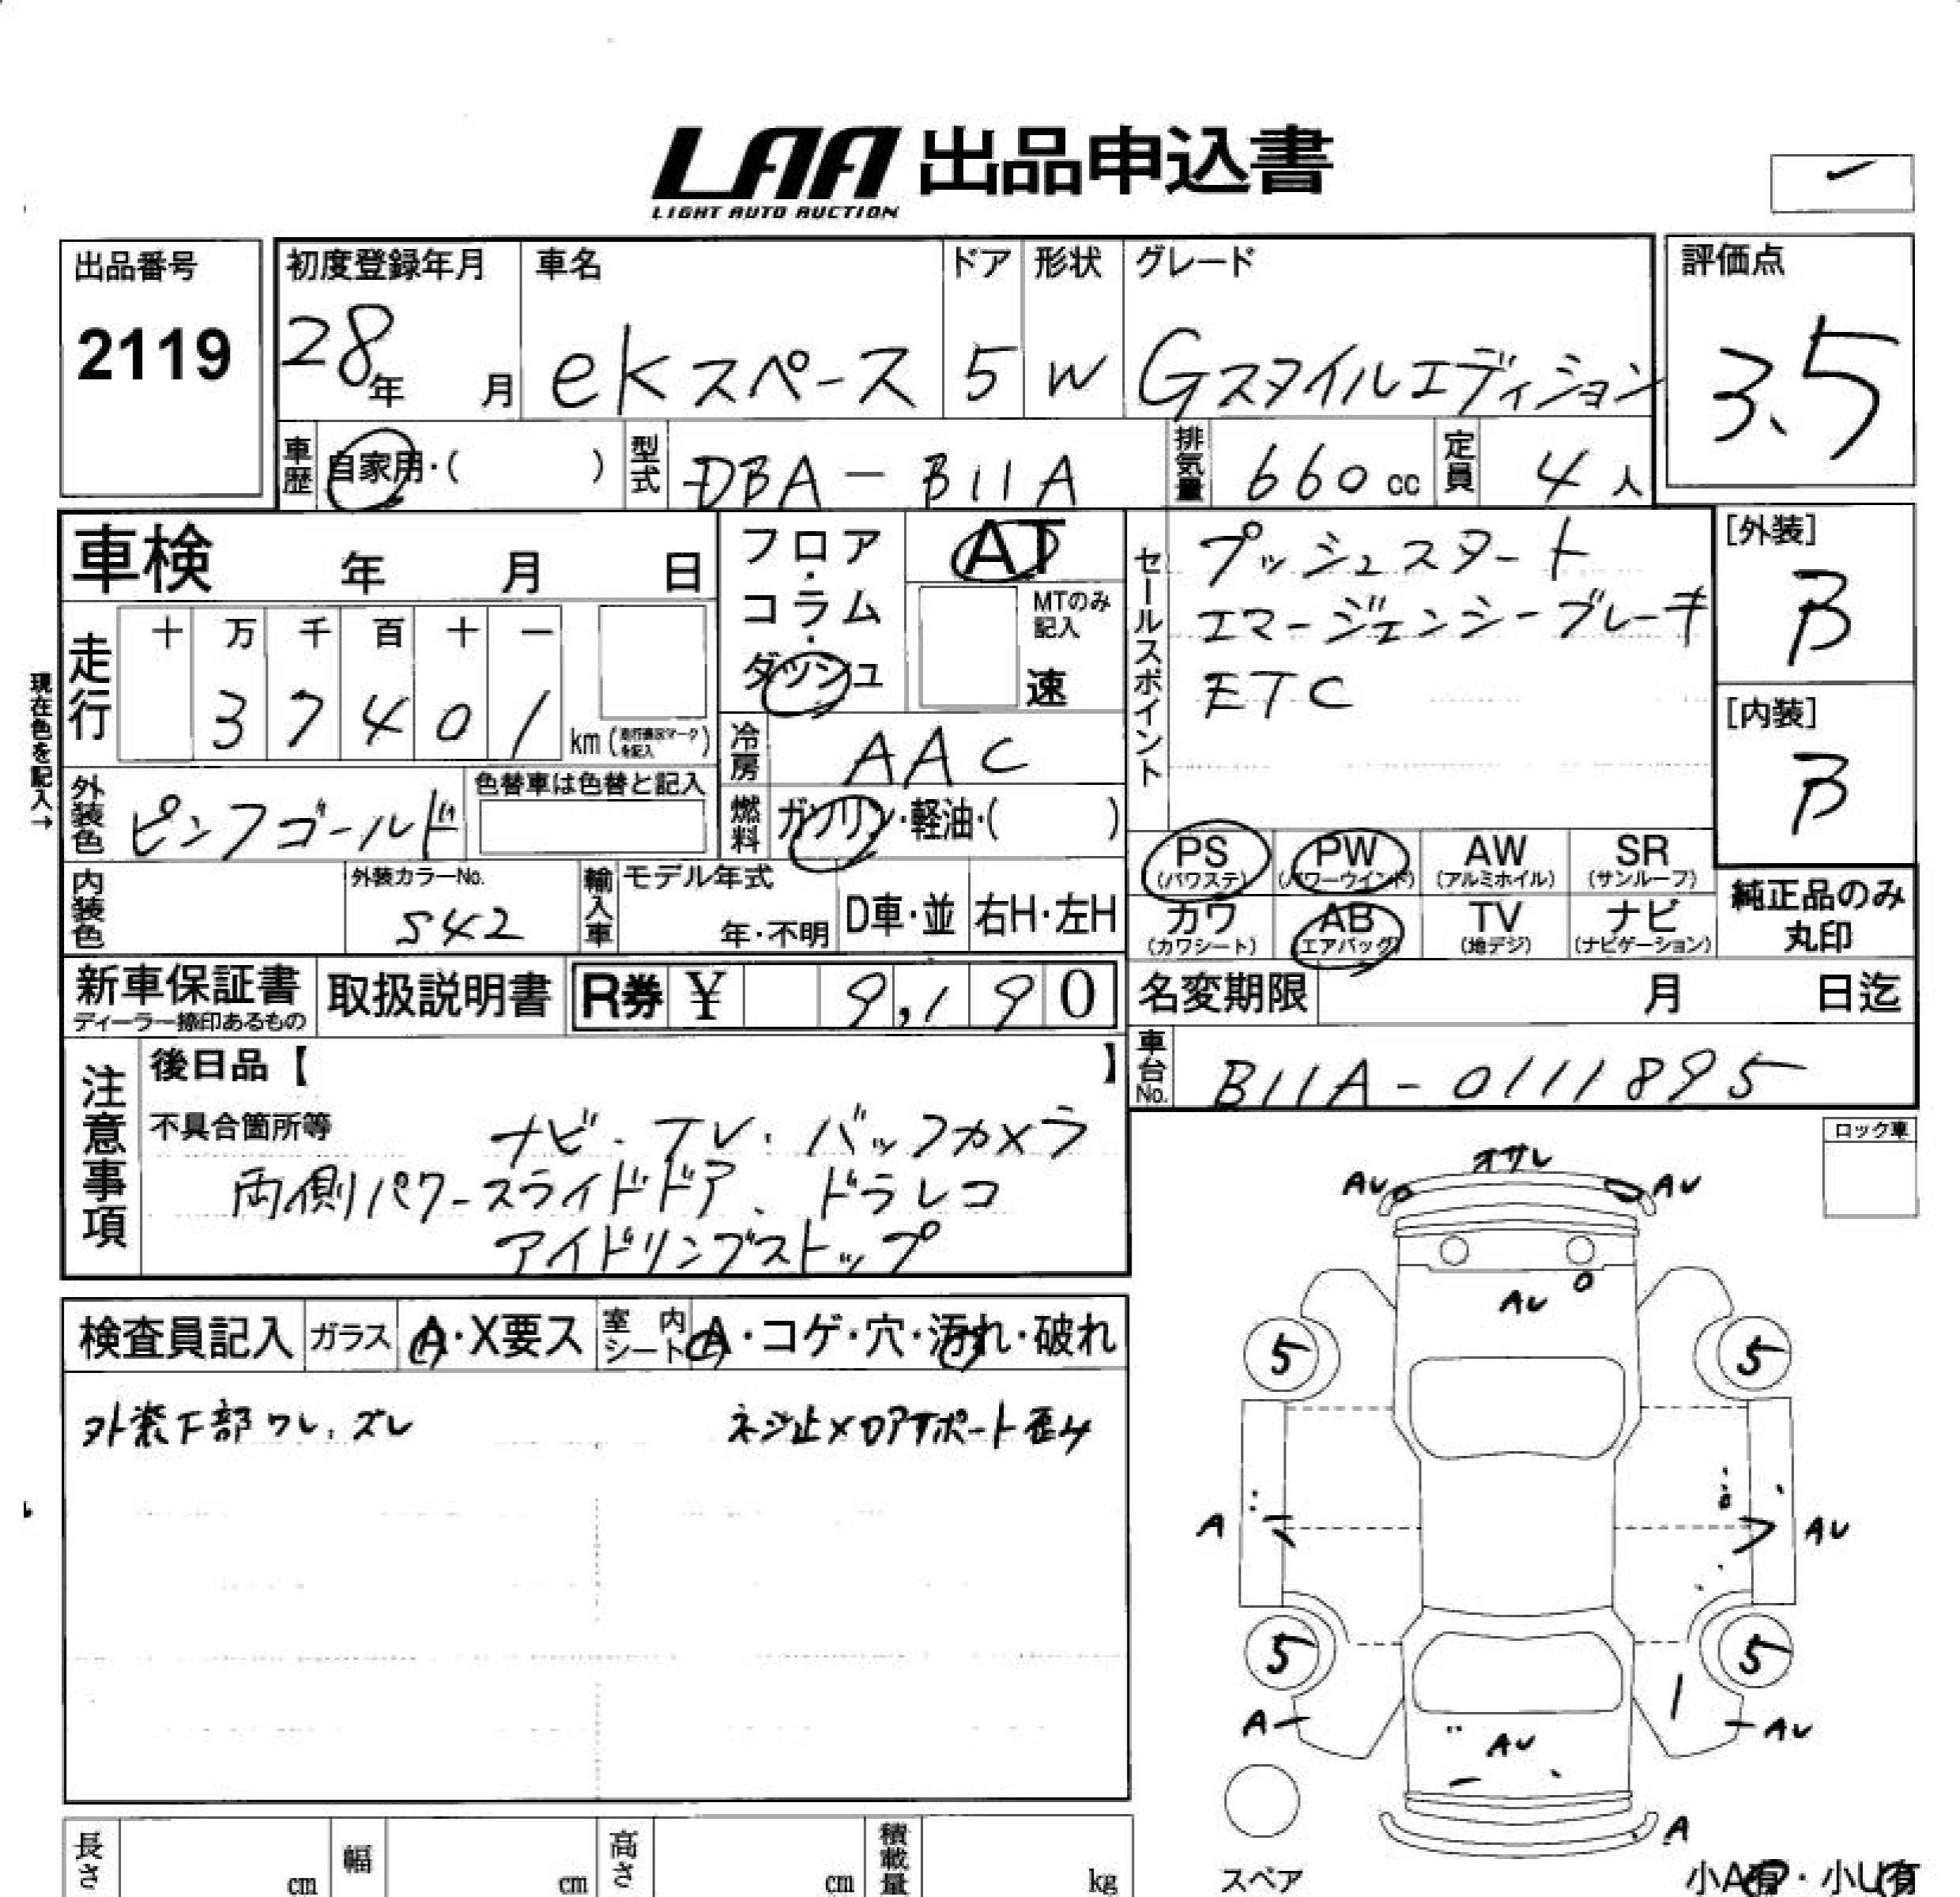 LAA 出品申込書
LIGHT AUTO AUCTION
出品番号
2119
初度登録年月
28年 月
車名
ekスペース
ドア
5
形状
W
グレード
Gスタイルエディション
評価点
3.5
車歴
自家用・( )
型式
DBA-B11A
排気量
660cc
定員
4人
車検 年 月 日
フロア・コラム・ダッシュ
AT
MTのみ記入
速
セールスポイント
プッシュスタート
エマージェンシーブレーキ
ETC
[外装]
B
[内装]
B
現在色を記入→
走行
十 万 千 百 十 一
3 7 4 0 1 km
冷房
AAC
外装色
ピンクゴールド
色替車は色替と記入
燃料
ガソリン・軽油・( )
内装色
外装カラーNo.
S42
輸入車
モデル年式
年・不明
D車・並
右H・左H
PS
(パワステ)
PW
(パワーウインド)
AW
(アルミホイル)
SR
(サンルーフ)
カワ
(カワシート)
AB
(エアバッグ)
TV
(地デジ)
ナビ
(ナビゲーション)
純正品のみ
丸印
新車保証書
取扱説明書
R券 ¥ 9,190
名変期限 月 日迄
車台No.
B11A-0111895
注意事項
後日品【 】
不具合箇所等
ナビ・TV・バックカメラ
両側パワースライドドア、ドラレコ
アイドリングストップ
ロック車
検査員記入
ガラス
A・X要ス
室内シート
A・コゲ・穴・汚れ・破れ
外装下部ワレ、ズレ
ネジ止メロアサポート歪ミ
オサレ
AU
AU
AU
5
5
A
AU
5
5
A
AU
AU
A
スペア
小A有・小U有
長さ cm
幅 cm
高さ cm
積載量 kg